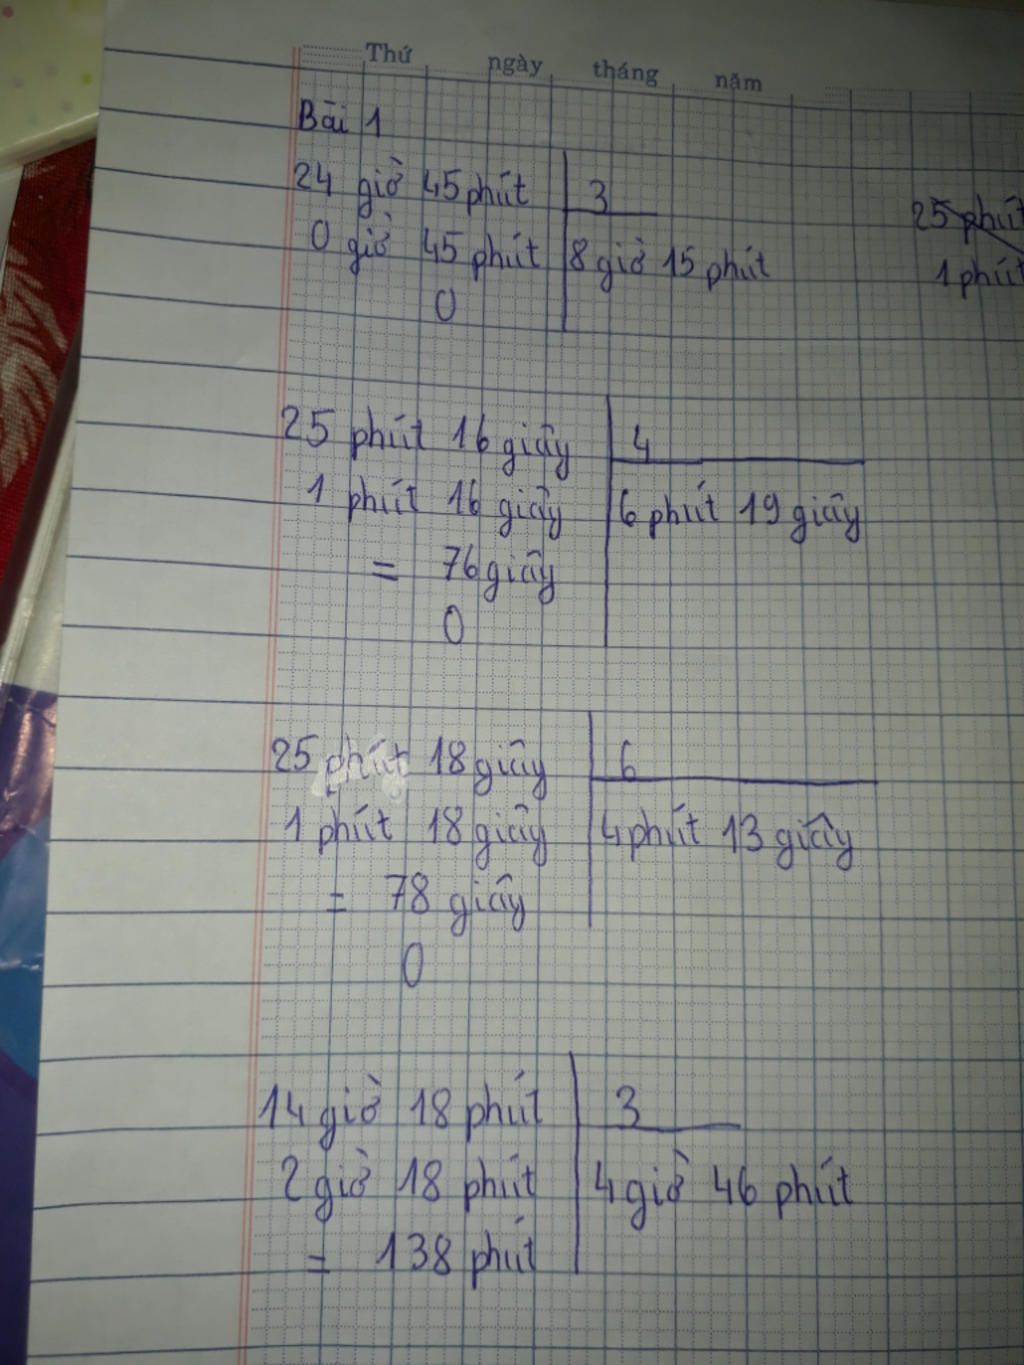 Thứ ngày tháng năm
Bài 1
24 giờ 45 phút 3
0 giờ 45 phút 8 giờ 15 phút
0
25 phút
1 phút
25 phút 16 giây 4
1 phút 16 giây 6 phút 19 giây
= 76 giây
0
25 phút 18 giây 6
1 phút 18 giây 4 phút 13 giây
= 78 giây
0
14 giờ 18 phút 3
2 giờ 18 phút 4 giờ 46 phút
= 138 phút